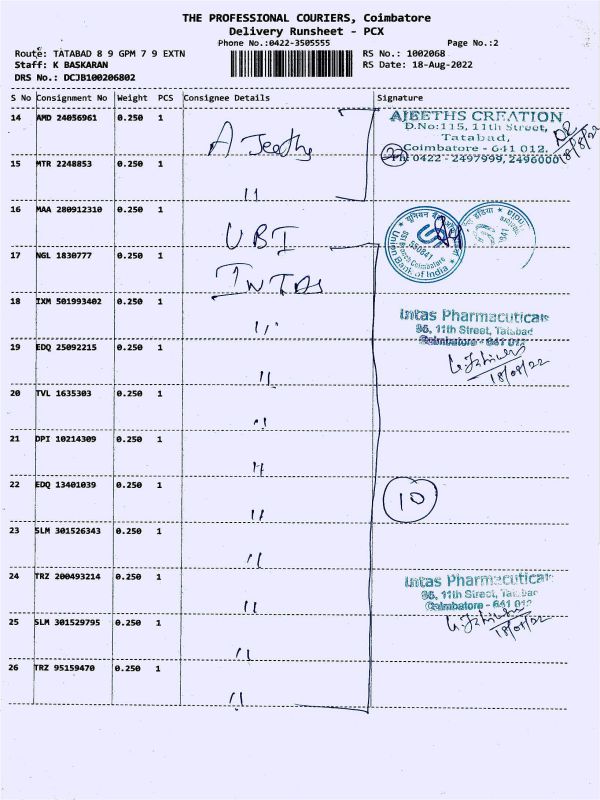 THE PROFESSIONAL COURIERS, Coimbatore
Delivery Runsheet - PCX
Phone No.:0422-3505555
Page No.:2
Route: TATABAD 8 9 GPM 7 9 EXTN
RS No.: 1002068
Staff: K BASKARAN
RS Date: 18-Aug-2022
DRS No.: DCJB100206802
S No Consignment No Weight PCS Consignee Details Signature
14 AMD 24056961 0.250 1 A Jeeths
AJEETHS CREATION
D.No:115, 11th Street,
Tatabad,
Coimbatore - 641 012.
Ph: 0422 - 2497999, 2496000
18/8/22
2
15 MTR 2248853 0.250 1 11
16 MAA 280912310 0.250 1 UBI
Union Bank of India
550841
17 NGL 1830777 0.250 1 INTAS
18 IXM 501993402 0.250 1 11
Intas Pharmaceuticals
86, 11th Street, Tatabad
Coimbatore - 641 012
18/08/22
19 EDQ 25092215 0.250 1 11
20 TVL 1635303 0.250 1 11
21 DPI 10214309 0.250 1 11
22 EDQ 13401039 0.250 1 11
10
23 SLM 301526343 0.250 1 11
24 TRZ 200493214 0.250 1 11
Intas Pharmaceuticals
86, 11th Street, Tatabad
Coimbatore - 641 012
18/08/22
25 SLM 301529795 0.250 1 11
26 TRZ 95159470 0.250 1 11